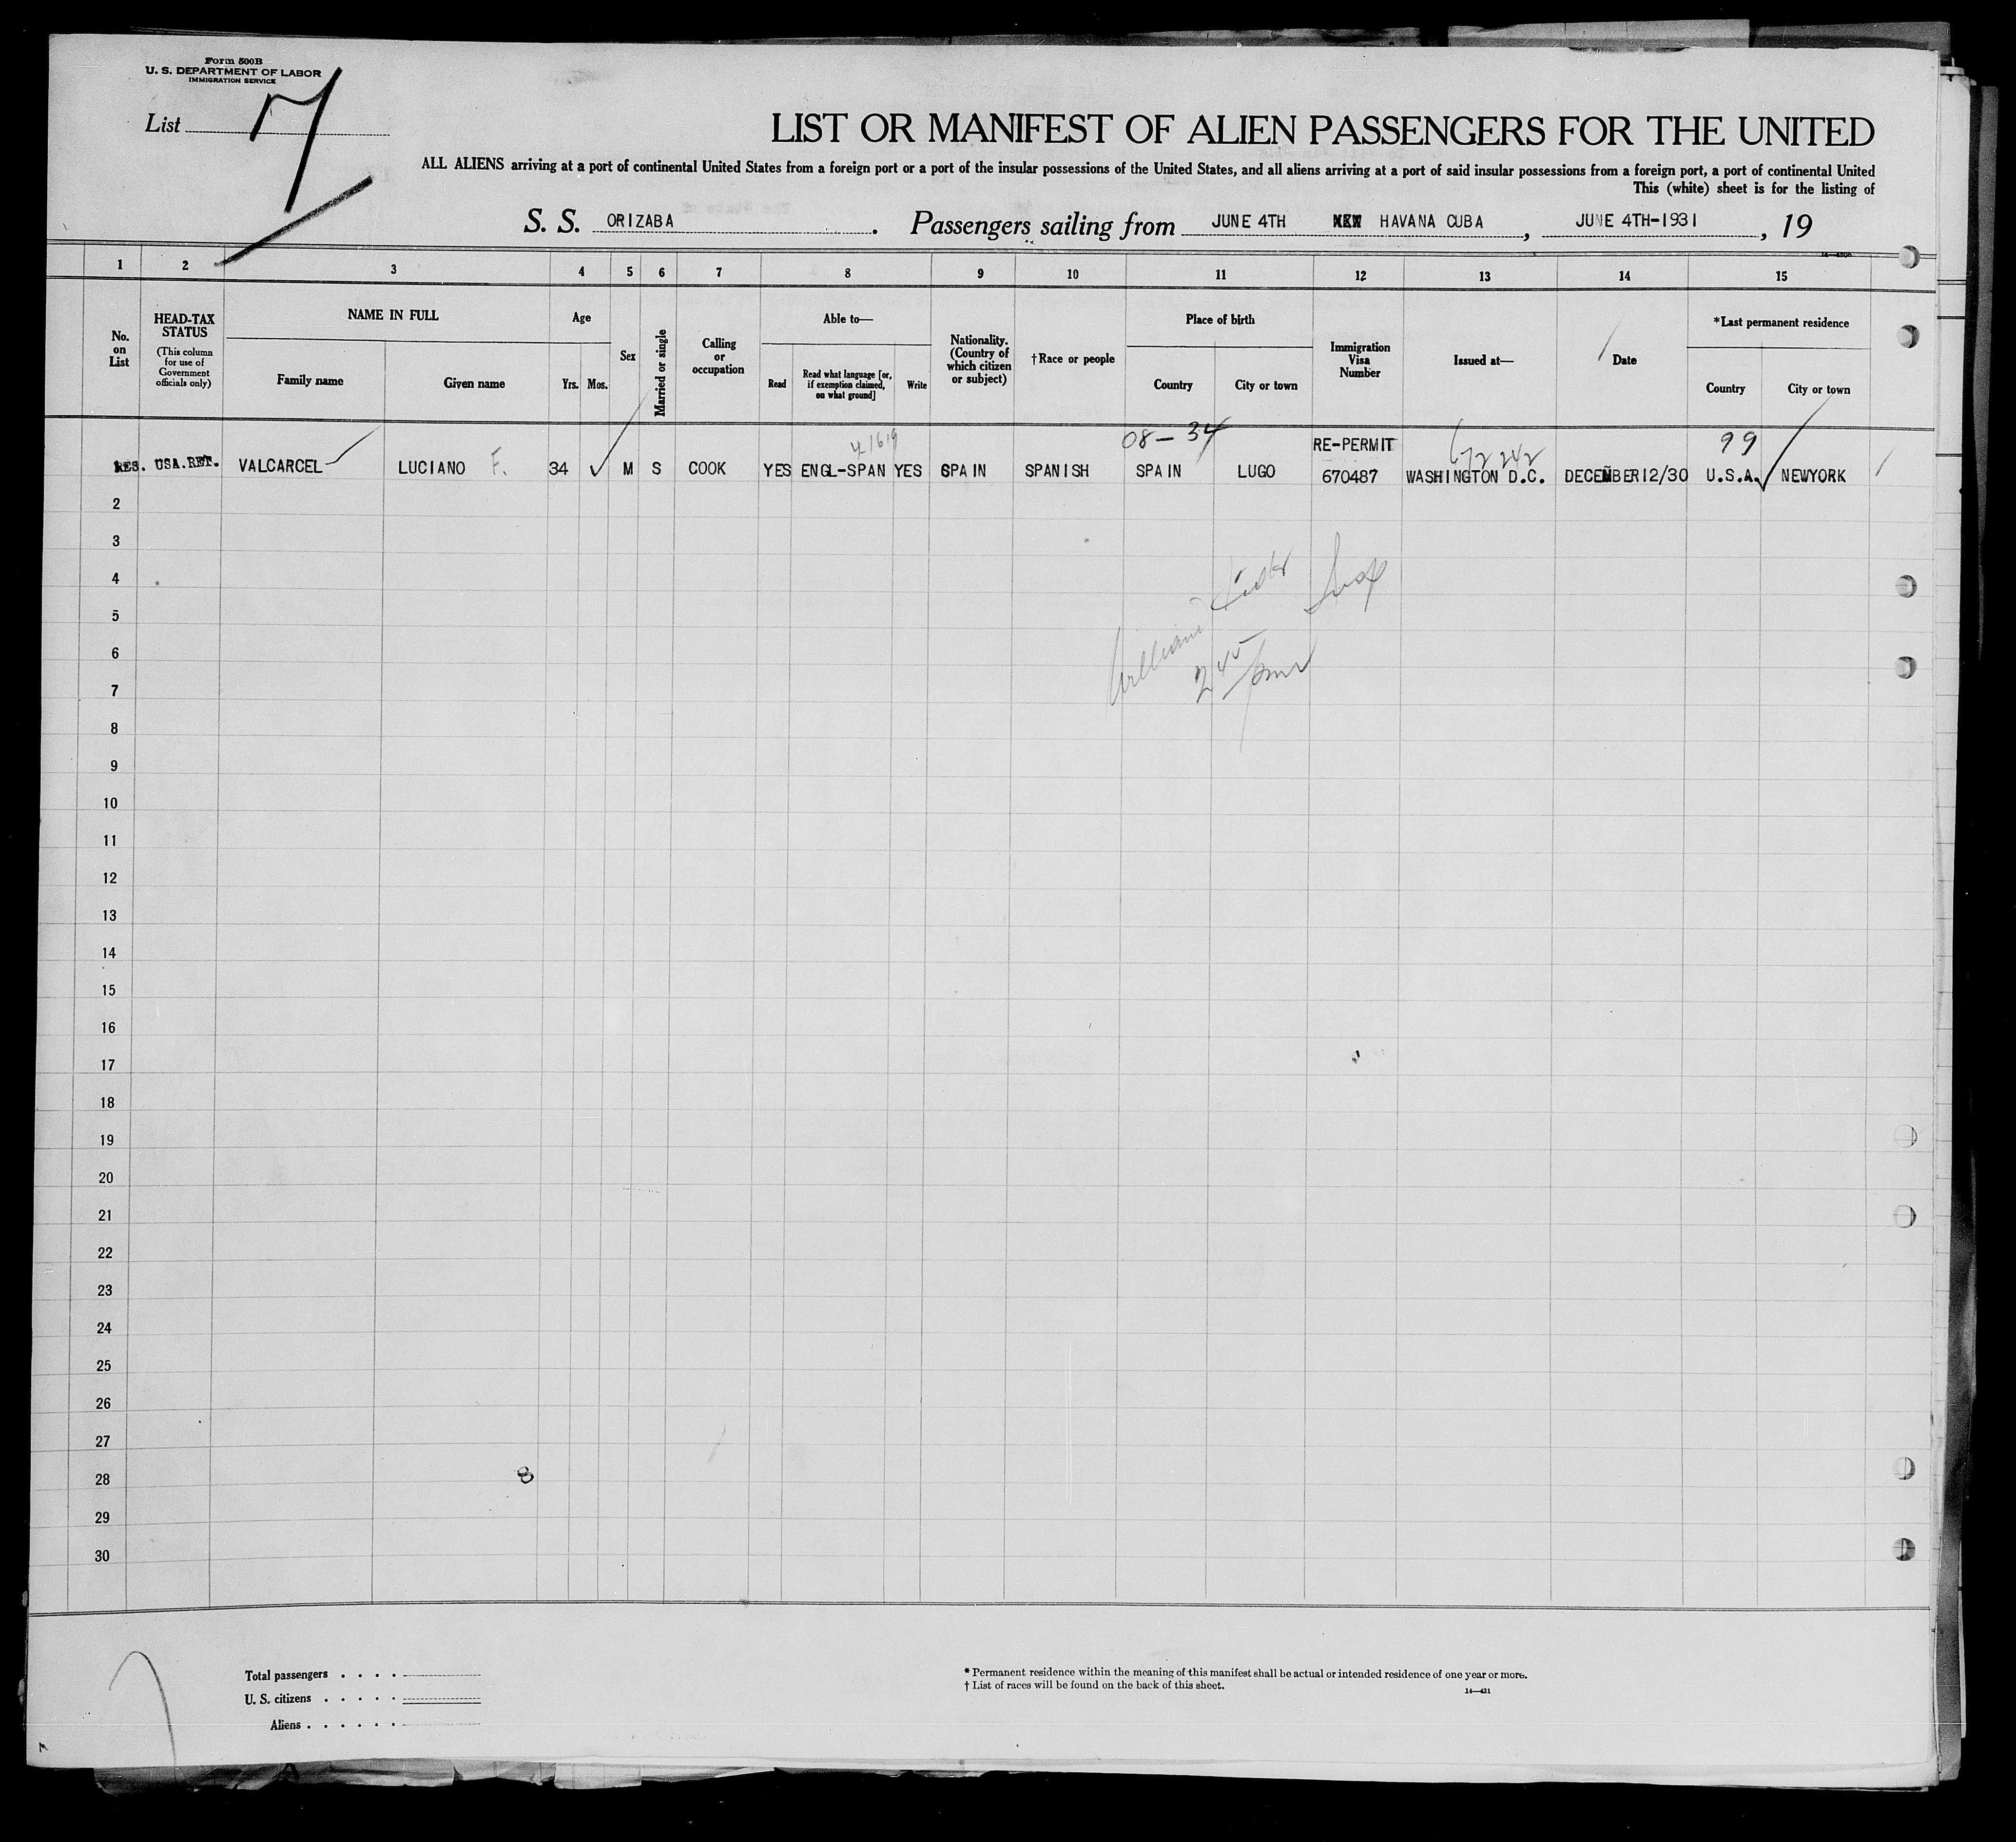 Form 500B
U. S. DEPARTMENT OF LABOR
IMMIGRATION SERVICE
List 7
LIST OR MANIFEST OF ALIEN PASSENGERS FOR THE UNITED
ALL ALIENS arriving at a port of continental United States from a foreign port or a port of the insular possessions of the United States, and all aliens arriving at a port of said insular possessions from a foreign port, a port of continental United
This (white) sheet is for the listing of
S. S. ORIZABA. Passengers sailing from JUNE 4TH HAVANA CUBA, JUNE 4TH-1931, 19
1 2 3 4 5 6 7 8 9 10 11 12 13 14 15
No. on List
HEAD-TAX STATUS
(This column for use of Government officials only)
NAME IN FULL
Family name
Given name
Age
Yrs. Mos.
Sex
Married or single
Calling or occupation
Able to—
Read
Read what language [or, if exemption claimed, on what ground]
Write
Nationality. (Country of which citizen or subject)
†Race or people
Place of birth
Country
City or town
Immigration Visa Number
Issued at—
Date
*Last permanent residence
Country
City or town
08-34
RE-PERMIT
672242
99
RES. USA.RET. VALCARCEL LUCIANO F. 34 M S COOK YES ENGL-SPAN YES SPAIN SPANISH SPAIN LUGO 670487 WASHINGTON D.C. DECEMBER12/30 U.S.A. NEWYORK
2
3
4
5
6
7
8
9
10
11
12
13
14
15
16
17
18
19
20
21
22
23
24
25
26
27
28
29
30
William
2 45 pm
8
Total passengers . . . .
U. S. citizens . . . . .
Aliens . . . . . .
* Permanent residence within the meaning of this manifest shall be actual or intended residence of one year or more.
† List of races will be found on the back of this sheet.
14—431